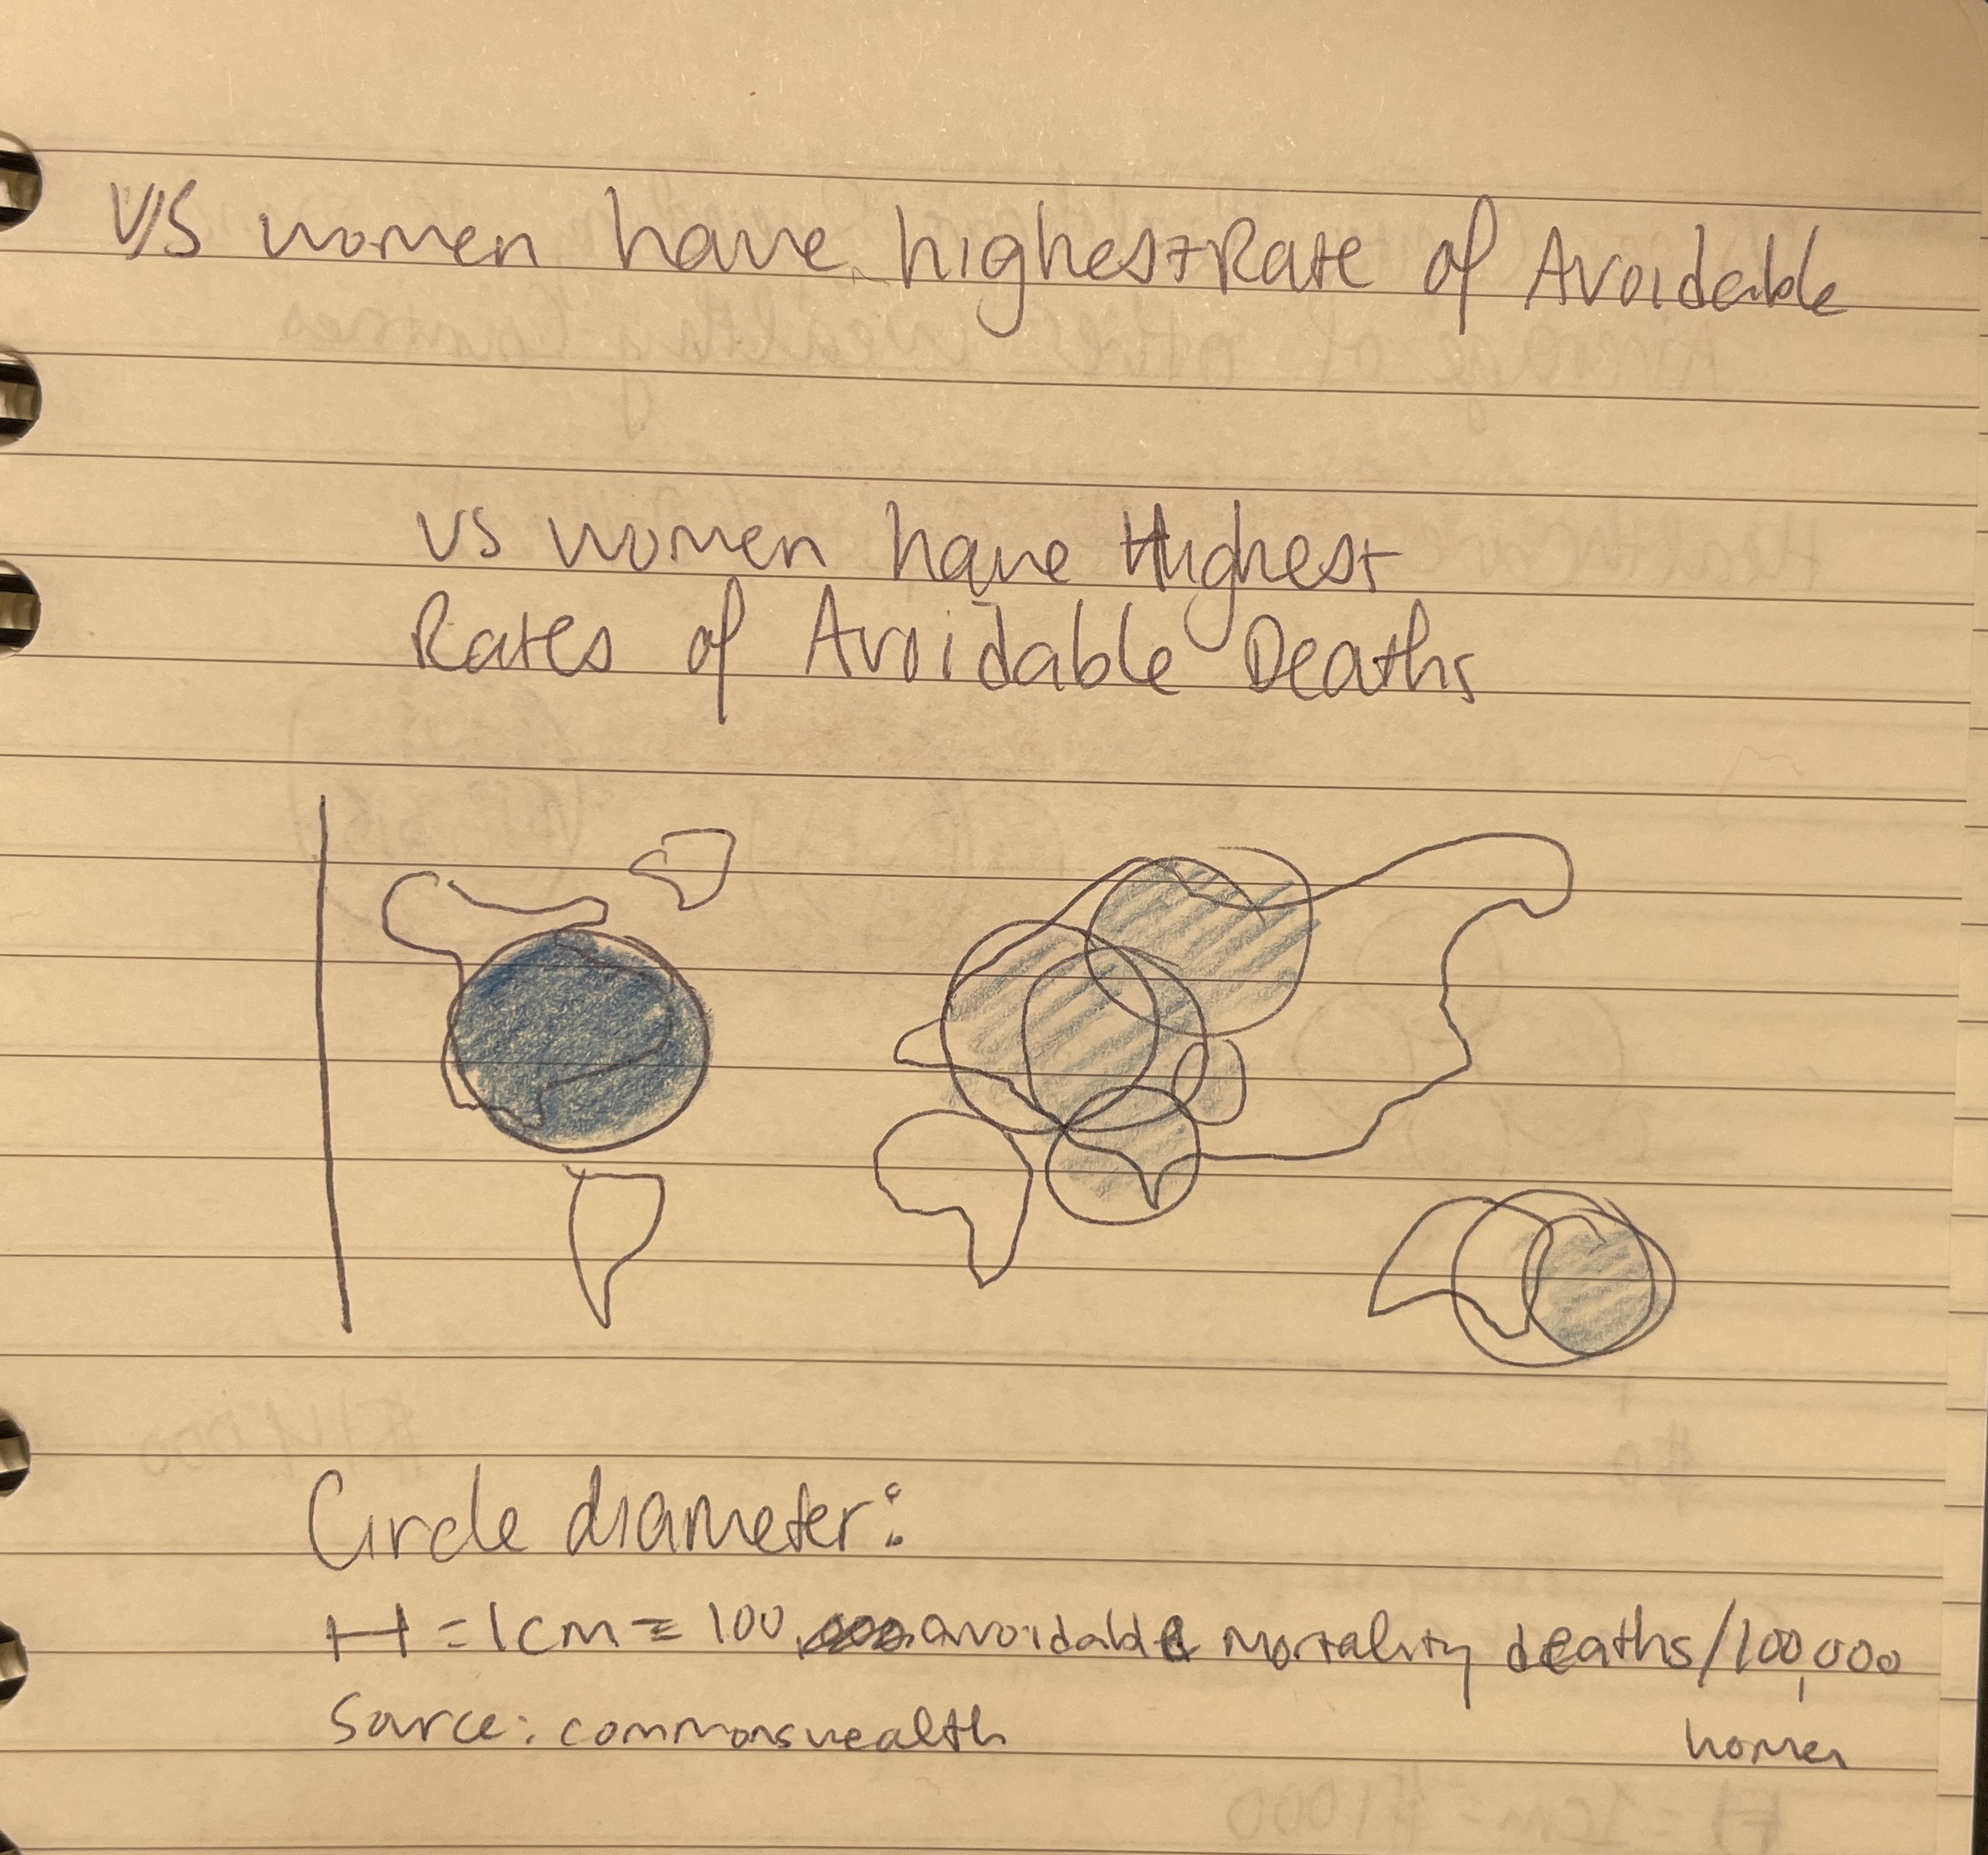 US women have highest Rate of Avoidable
US women have Highest
Rates of Avoidable Deaths
Circle diameter:
= 1cm = 100 avoidable mortality deaths/100,000
women
Source: commonswealth